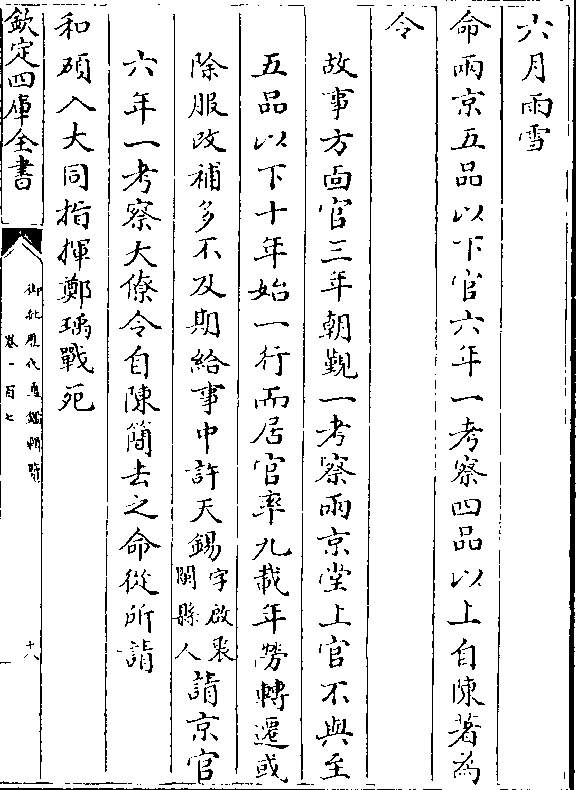 六月雨雪
命兩京五品以下官六年一考察四品以上自陳著爲
令
故事方面官三年朝覲一考察兩京堂上官不與至
五品以下十年始一行而居官率九載年勞轉遷或
除服改補多不及期給事中許天錫字啟衷閩縣人請京官
六年一考察大僚令自陳簡去之命從所請
和碩入大同指揮鄭瑀戰死
欽定四庫全書
御批歷代通鑑輯覽
卷一百七
十八